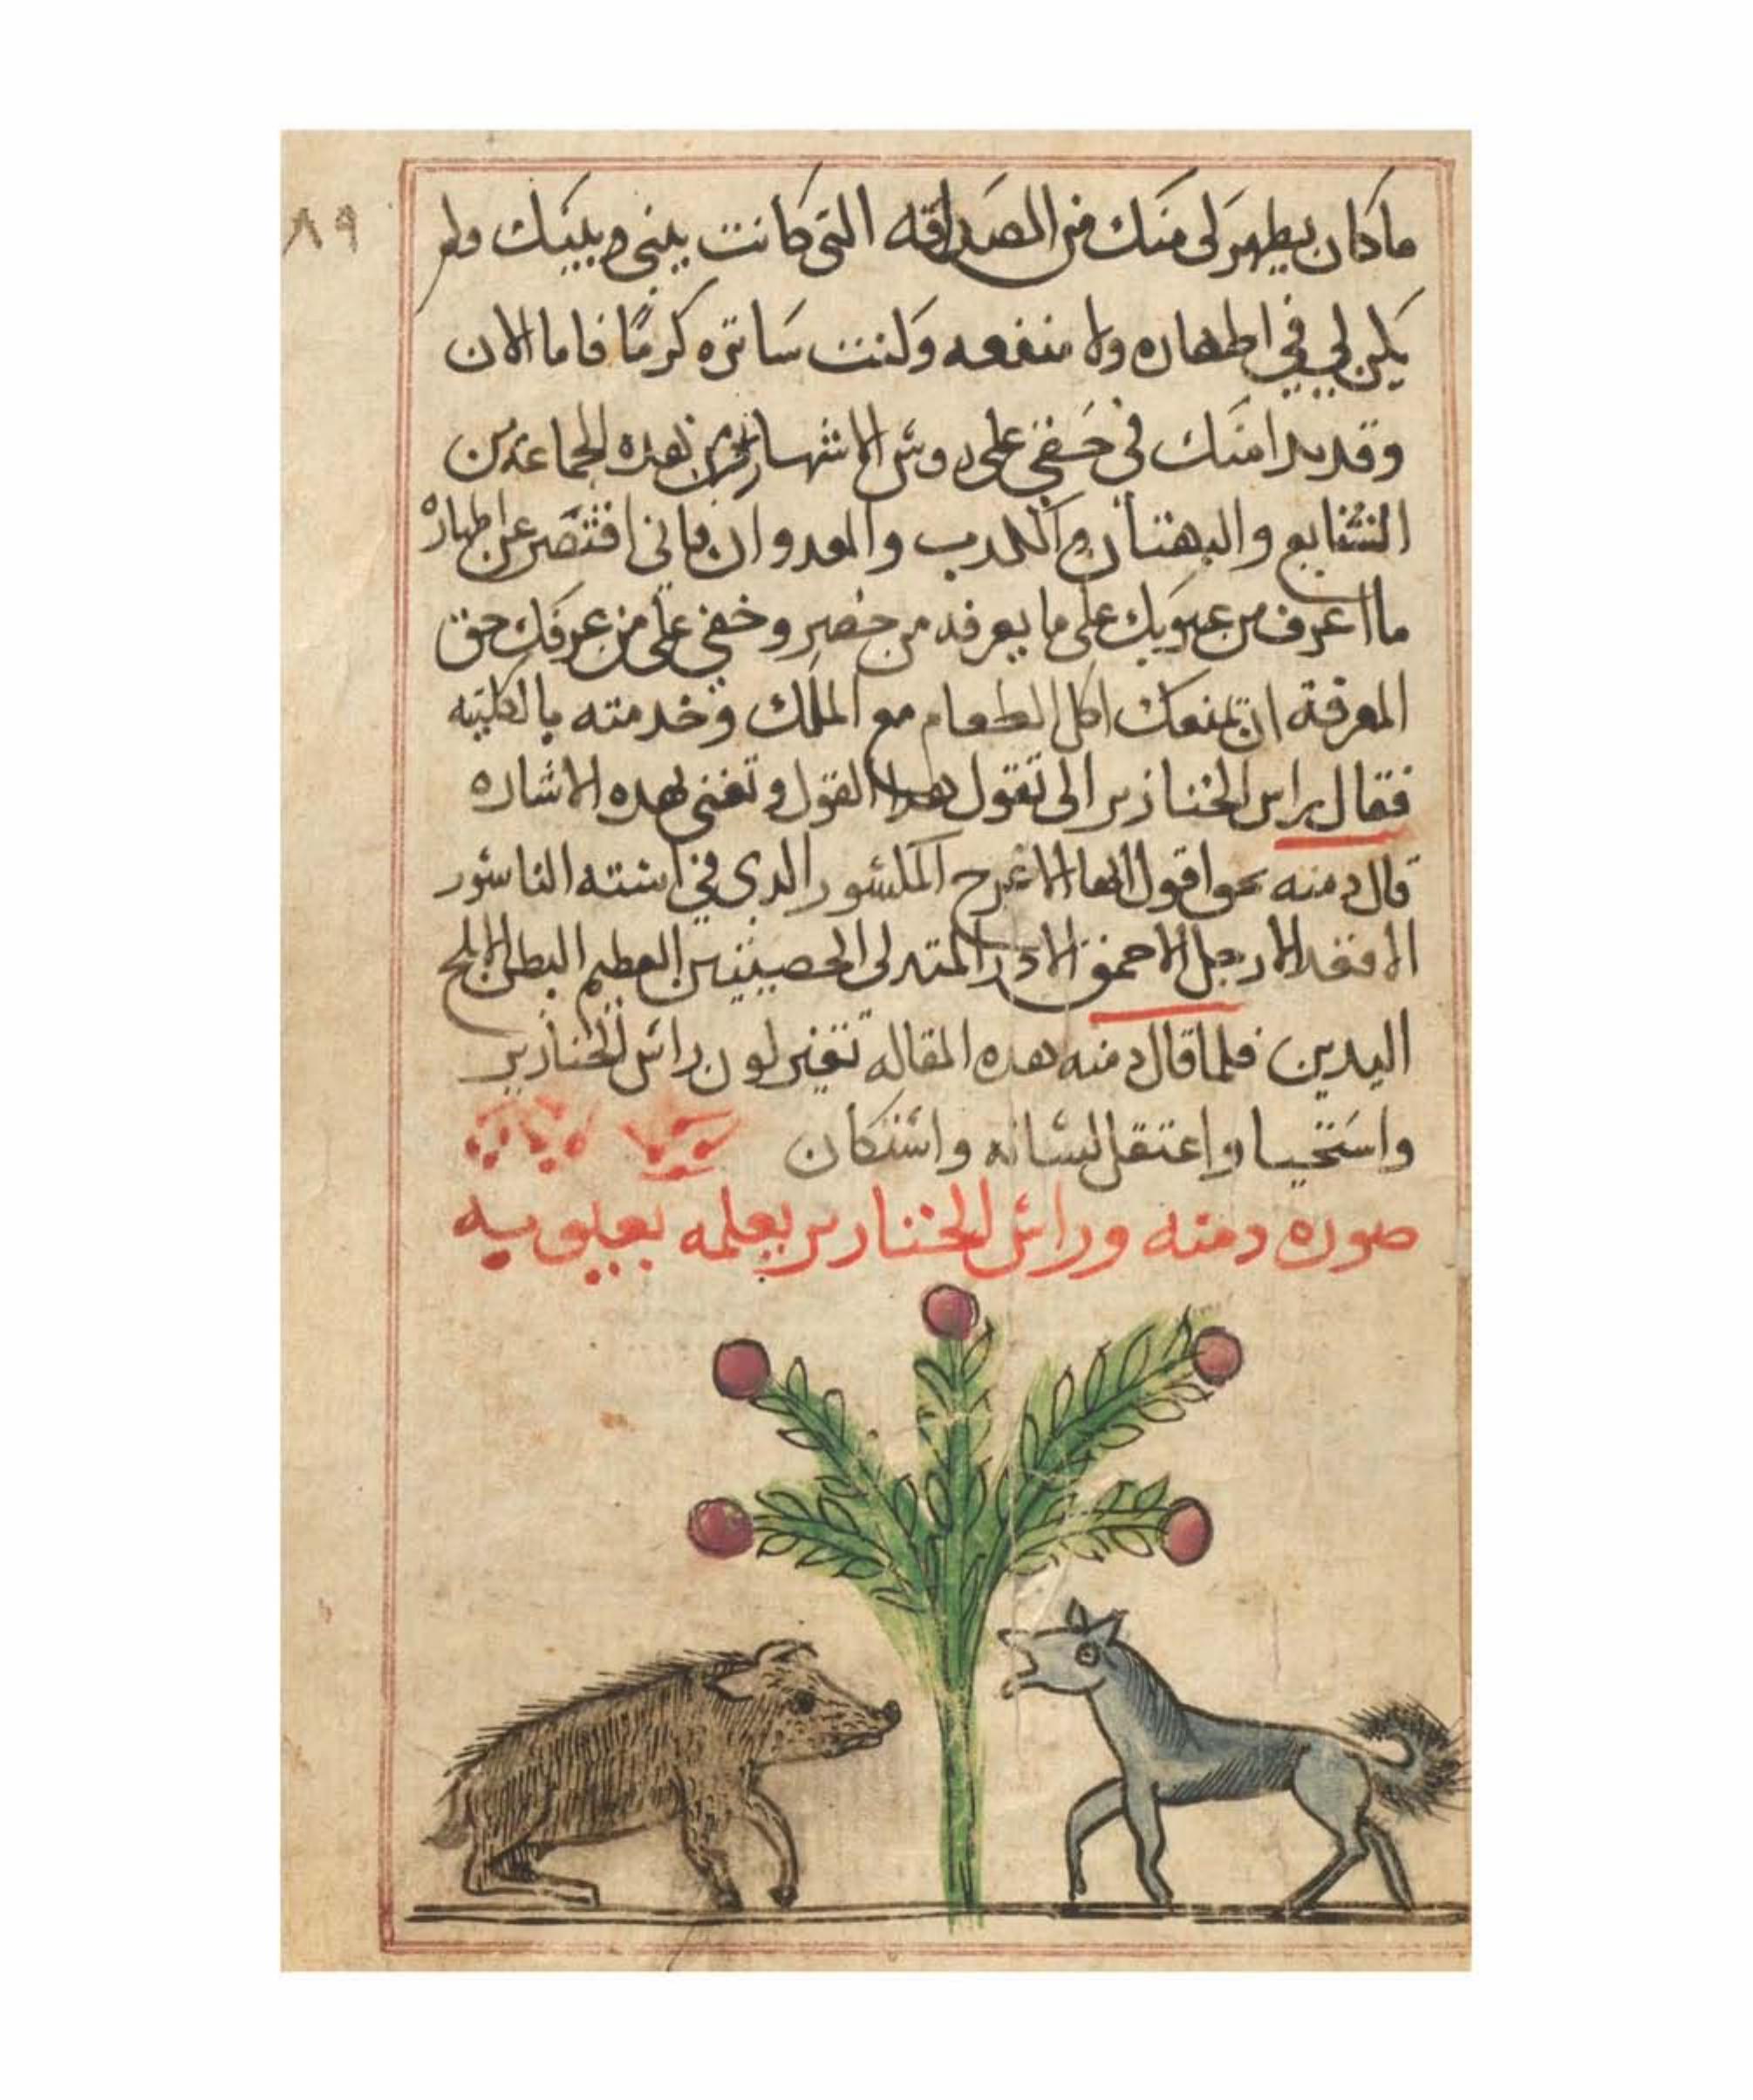 ٨٩
ما كان يظهر لى منك من الصداقه التى كانت بينى وبينك ولم
يكن لي في اظهاره ولا منفعه وكنت ساتره كرمًا فاما الان
وقد بدا منك في حقي على روس الاشهاد من هذه الجماعة من
الشنايع والبهتان والكدب والعدوان فانى اقتصر عن اظهاره
ما اعرف من عيوبك على ما يعرفه من حضر وخفي على من عرفك حق
المعرفة ان تمنعك اكل الطعام مع الملك وخدمته بالكليه
فقال راس الخنازير الى تقول هدا القول وتعنى بهده الاشاره
قال دمنه نحوا قول ايها الاعرج المكسور الدى في استه الناسور
الافقد الارجل الاحمق الادر المتدلى الخصيتين العظيم البطن الابلح
اليدين فلما قال دمنه هده المقاله تغير لون راس الخنازير
واستحيا واعتقل لسانه واستكان
صوره دمنه وراس الخنازير يعلمه بعيوبه